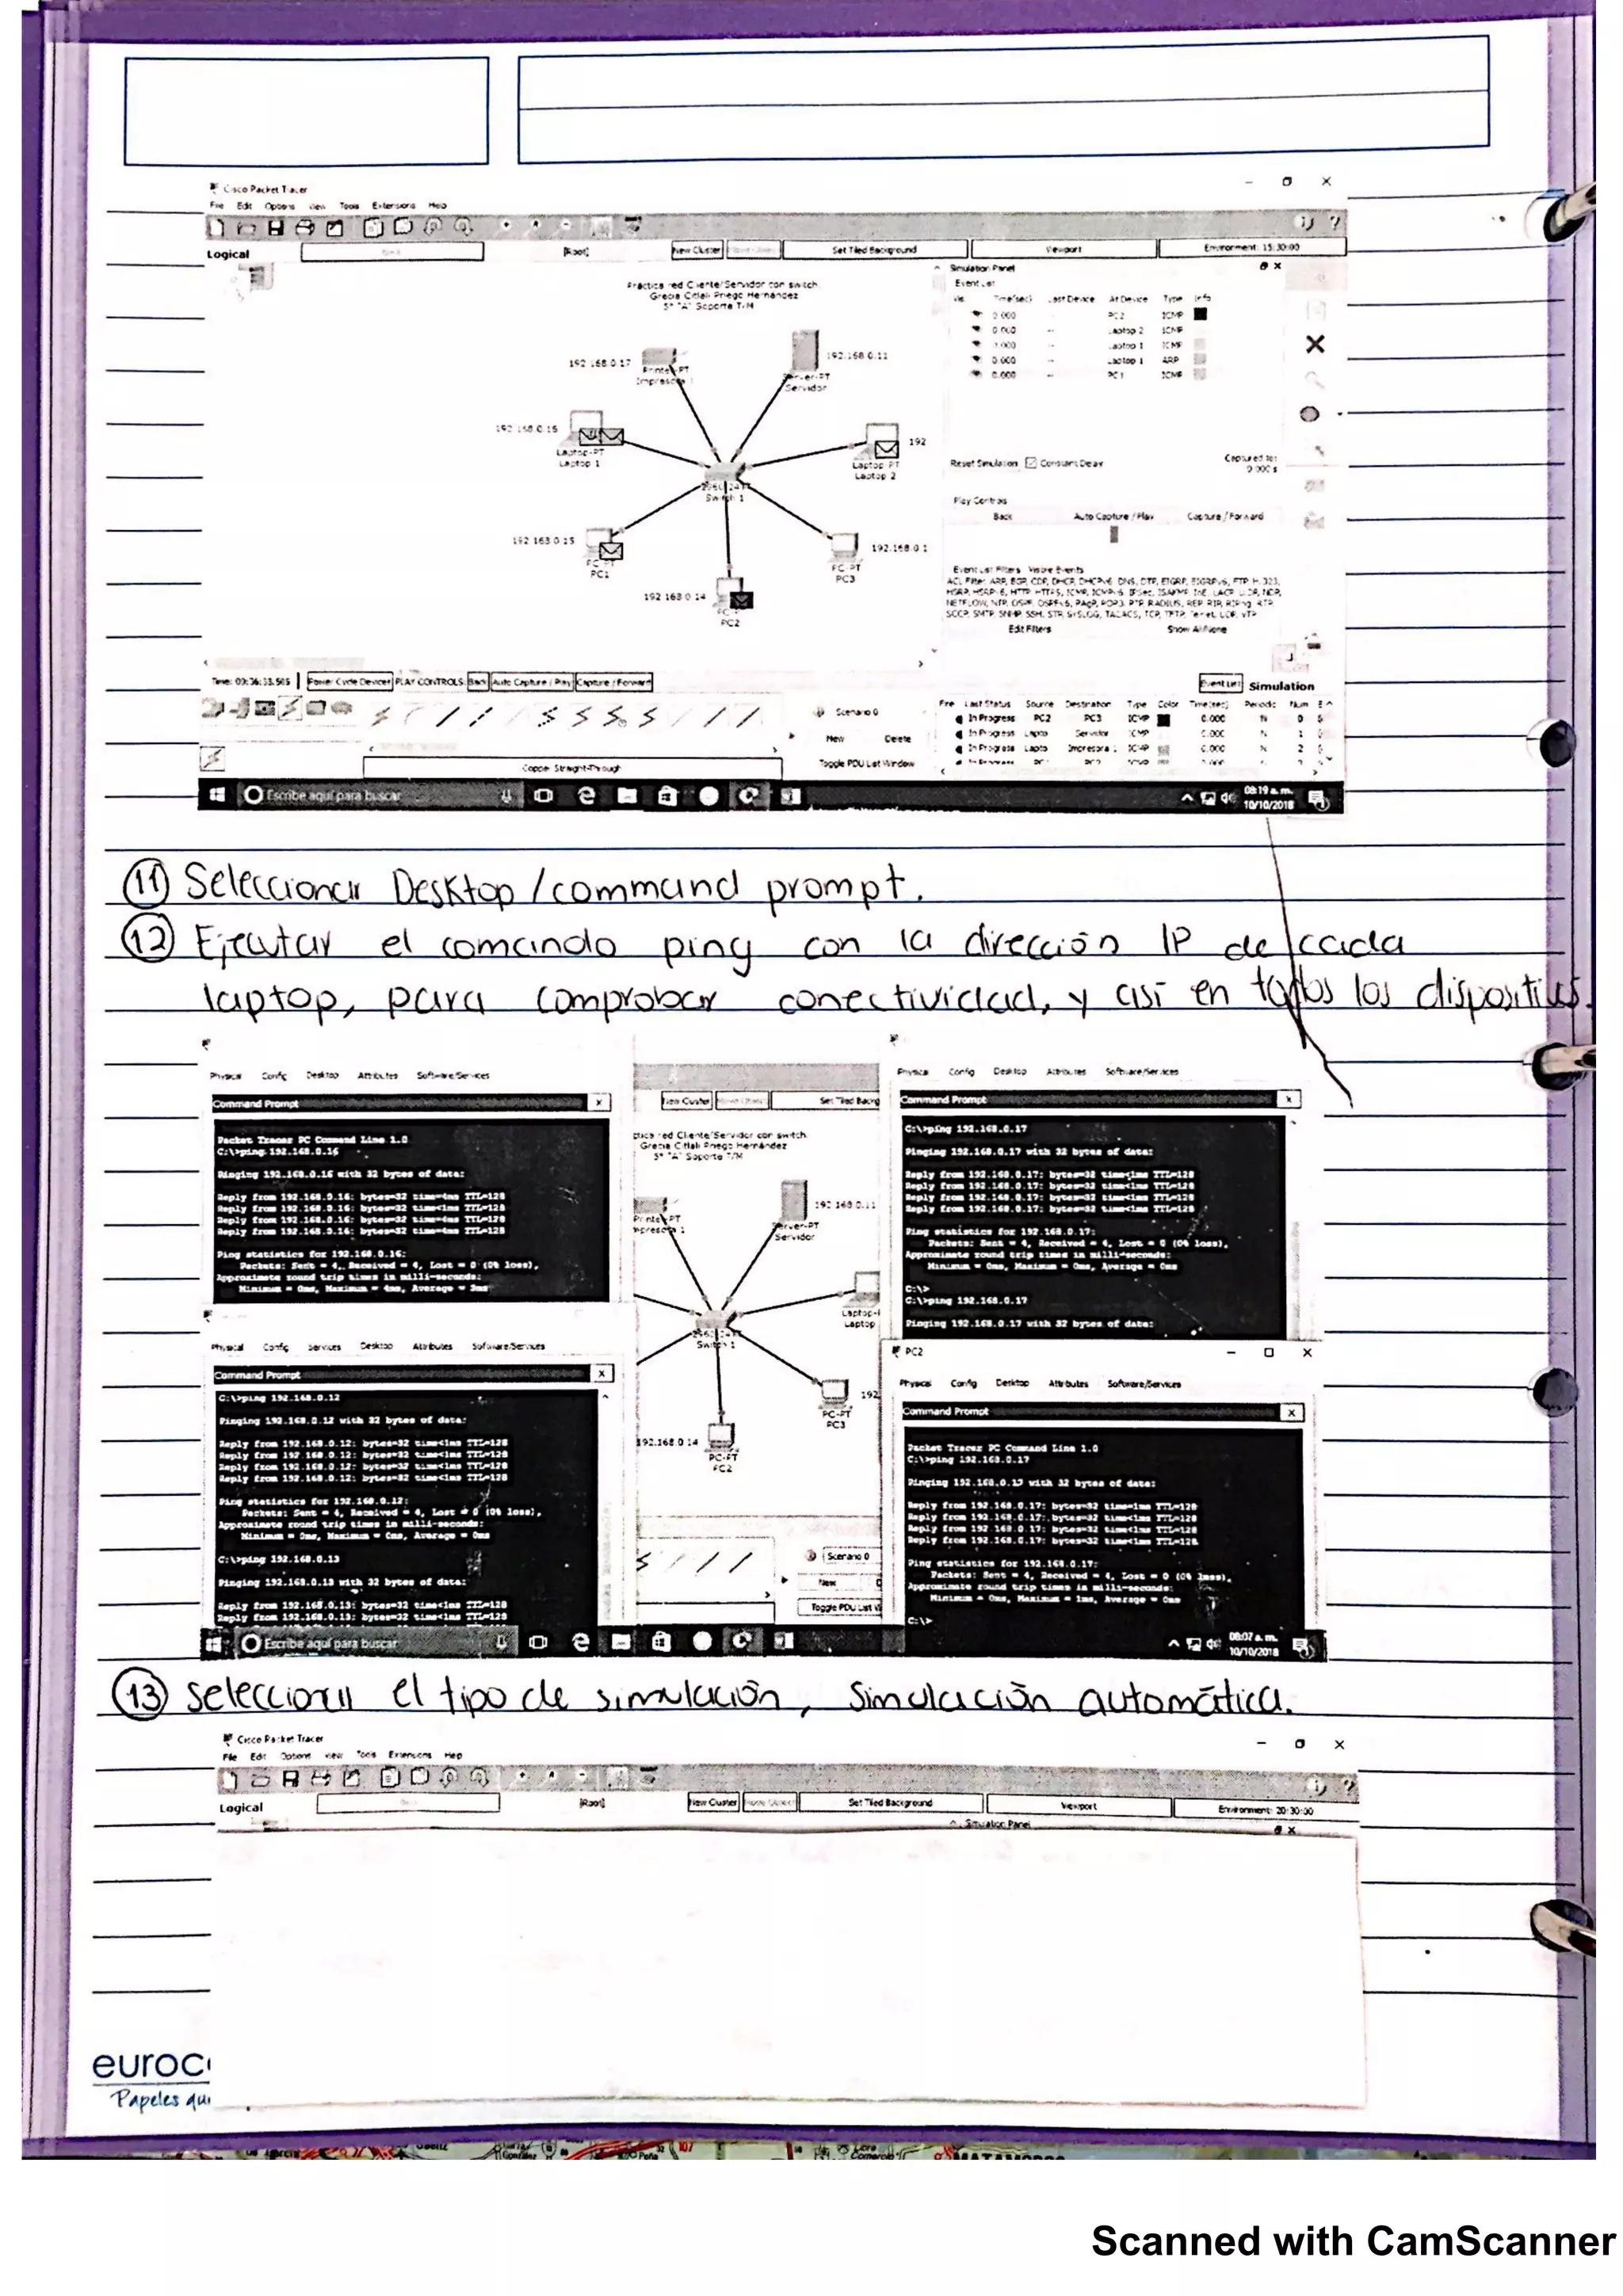 Cisco Packet Tracer
File Edit Options View Tools Extensions Help
Logical [Root] New Cluster Set Tiled Background Viewport Environment: 15:30:00
Práctica red Cliente/Servidor con switch
Grecia Citlali Priego Hernández
5° "A" Soporte T/M
192.168.0.17
Printer-PT
Impresora 1
192.168.0.11
Server-PT
Servidor
Laptop-PT
Laptop 1
192
Laptop-PT
Laptop 2
Switch 1
PC-PT
PC1
192.168.0.14
PC2
192.168.0.1
PC-PT
PC3
Simulation Panel
Event List
Vis. Time(sec) Last Device At Device Type Info
0.000 -- PC2 ICMP
0.000 -- Laptop 2 ICMP
0.000 -- Laptop 1 ICMP
0.000 -- Laptop 1 ARP
0.000 -- PC1 ICMP
Reset Simulation Constant Delay
Captured to:
0.000 s
Play Controls
Back Auto Capture / Play Capture / Forward
Event List Filters - Visible Events
Edit Filters Show All/None
Power Cycle Devices PLAY CONTROLS: Back Auto Capture / Play Capture / Forward
Event List Simulation
Scenario 0
New Delete
Toggle PDU List Window
Fire Last Status Source Destination Type Color Time(sec) Periodic Num
In Progress PC2 PC3 ICMP 0.000 N 0
In Progress Lapto Servidor ICMP 0.000 N 1
In Progress Lapto Impresora 1 ICMP 0.000 N 2
Copper Straight-Through
Escribe aquí para buscar
08:19 a.m.
10/10/2018
11 Seleccionar Desktop/command prompt.
12 Ejecutar el comando ping con la dirección IP de cada
laptop, para comprobar conectividad, y así en todos los dispositivos.
Physical Config Desktop Attributes Software/Services
Command Prompt
Packet Tracer PC Command Line 1.0
C:\>ping 192.168.0.16
Pinging 192.168.0.16 with 32 bytes of data:
Reply from 192.168.0.16: bytes=32 time=4ms TTL=128
Reply from 192.168.0.16: bytes=32 time<1ms TTL=128
Reply from 192.168.0.16: bytes=32 time=4ms TTL=128
Reply from 192.168.0.16: bytes=32 time=4ms TTL=128
Ping statistics for 192.168.0.16:
Packets: Sent = 4, Received = 4, Lost = 0 (0% loss),
Approximate round trip times in milli-seconds:
Minimum = 0ms, Maximum = 4ms, Average = 3ms
New Cluster Set Tiled Backg
ctica red Cliente/Servidor con switch
Grecia Citlali Priego Hernández
5° "A" Soporte T/M
Printer-PT
mpresora 1
192.168.0.11
Server-PT
Servidor
Laptop
Switch 1
192
PC-PT
PC3
192.168.0.14
PC-PT
PC2
Scenario 0
New
Toggle PDU List W
Physical Config Desktop Attributes Software/Services
Command Prompt
C:\>ping 192.168.0.17
Pinging 192.168.0.17 with 32 bytes of data:
Reply from 192.168.0.17: bytes=32 time<1ms TTL=128
Reply from 192.168.0.17: bytes=32 time<1ms TTL=128
Reply from 192.168.0.17: bytes=32 time<1ms TTL=128
Reply from 192.168.0.17: bytes=32 time<1ms TTL=128
Ping statistics for 192.168.0.17:
Packets: Sent = 4, Received = 4, Lost = 0 (0% loss),
Approximate round trip times in milli-seconds:
Minimum = 0ms, Maximum = 0ms, Average = 0ms
C:\>
C:\>ping 192.168.0.17
Pinging 192.168.0.17 with 32 bytes of data:
Physical Config Services Desktop Attributes Software/Services
Command Prompt
C:\>ping 192.168.0.12
Pinging 192.168.0.12 with 32 bytes of data:
Reply from 192.168.0.12: bytes=32 time<1ms TTL=128
Reply from 192.168.0.12: bytes=32 time<1ms TTL=128
Reply from 192.168.0.12: bytes=32 time<1ms TTL=128
Reply from 192.168.0.12: bytes=32 time<1ms TTL=128
Ping statistics for 192.168.0.12:
Packets: Sent = 4, Received = 4, Lost = 0 (0% loss),
Approximate round trip times in milli-seconds:
Minimum = 0ms, Maximum = 0ms, Average = 0ms
C:\>ping 192.168.0.13
Pinging 192.168.0.13 with 32 bytes of data:
Reply from 192.168.0.13: bytes=32 time<1ms TTL=128
Reply from 192.168.0.13: bytes=32 time<1ms TTL=128
PC2
Physical Config Desktop Attributes Software/Services
Command Prompt
Packet Tracer PC Command Line 1.0
C:\>ping 192.168.0.17
Pinging 192.168.0.17 with 32 bytes of data:
Reply from 192.168.0.17: bytes=32 time=1ms TTL=128
Reply from 192.168.0.17: bytes=32 time<1ms TTL=128
Reply from 192.168.0.17: bytes=32 time<1ms TTL=128
Reply from 192.168.0.17: bytes=32 time<1ms TTL=128
Ping statistics for 192.168.0.17:
Packets: Sent = 4, Received = 4, Lost = 0 (0% loss),
Approximate round trip times in milli-seconds:
Minimum = 0ms, Maximum = 1ms, Average = 0ms
C:\>
Escribe aquí para buscar
08:07 a.m.
10/10/2018
13 seleccionar el tipo de simulación, simulación automática.
Cisco Packet Tracer
File Edit Options View Tools Extensions Help
Logical [Root] New Cluster Set Tiled Background Viewport Environment: 20:30:00
Simulation Panel
euroc
Papeles qu
MATAMOROS
Scanned with CamScanner